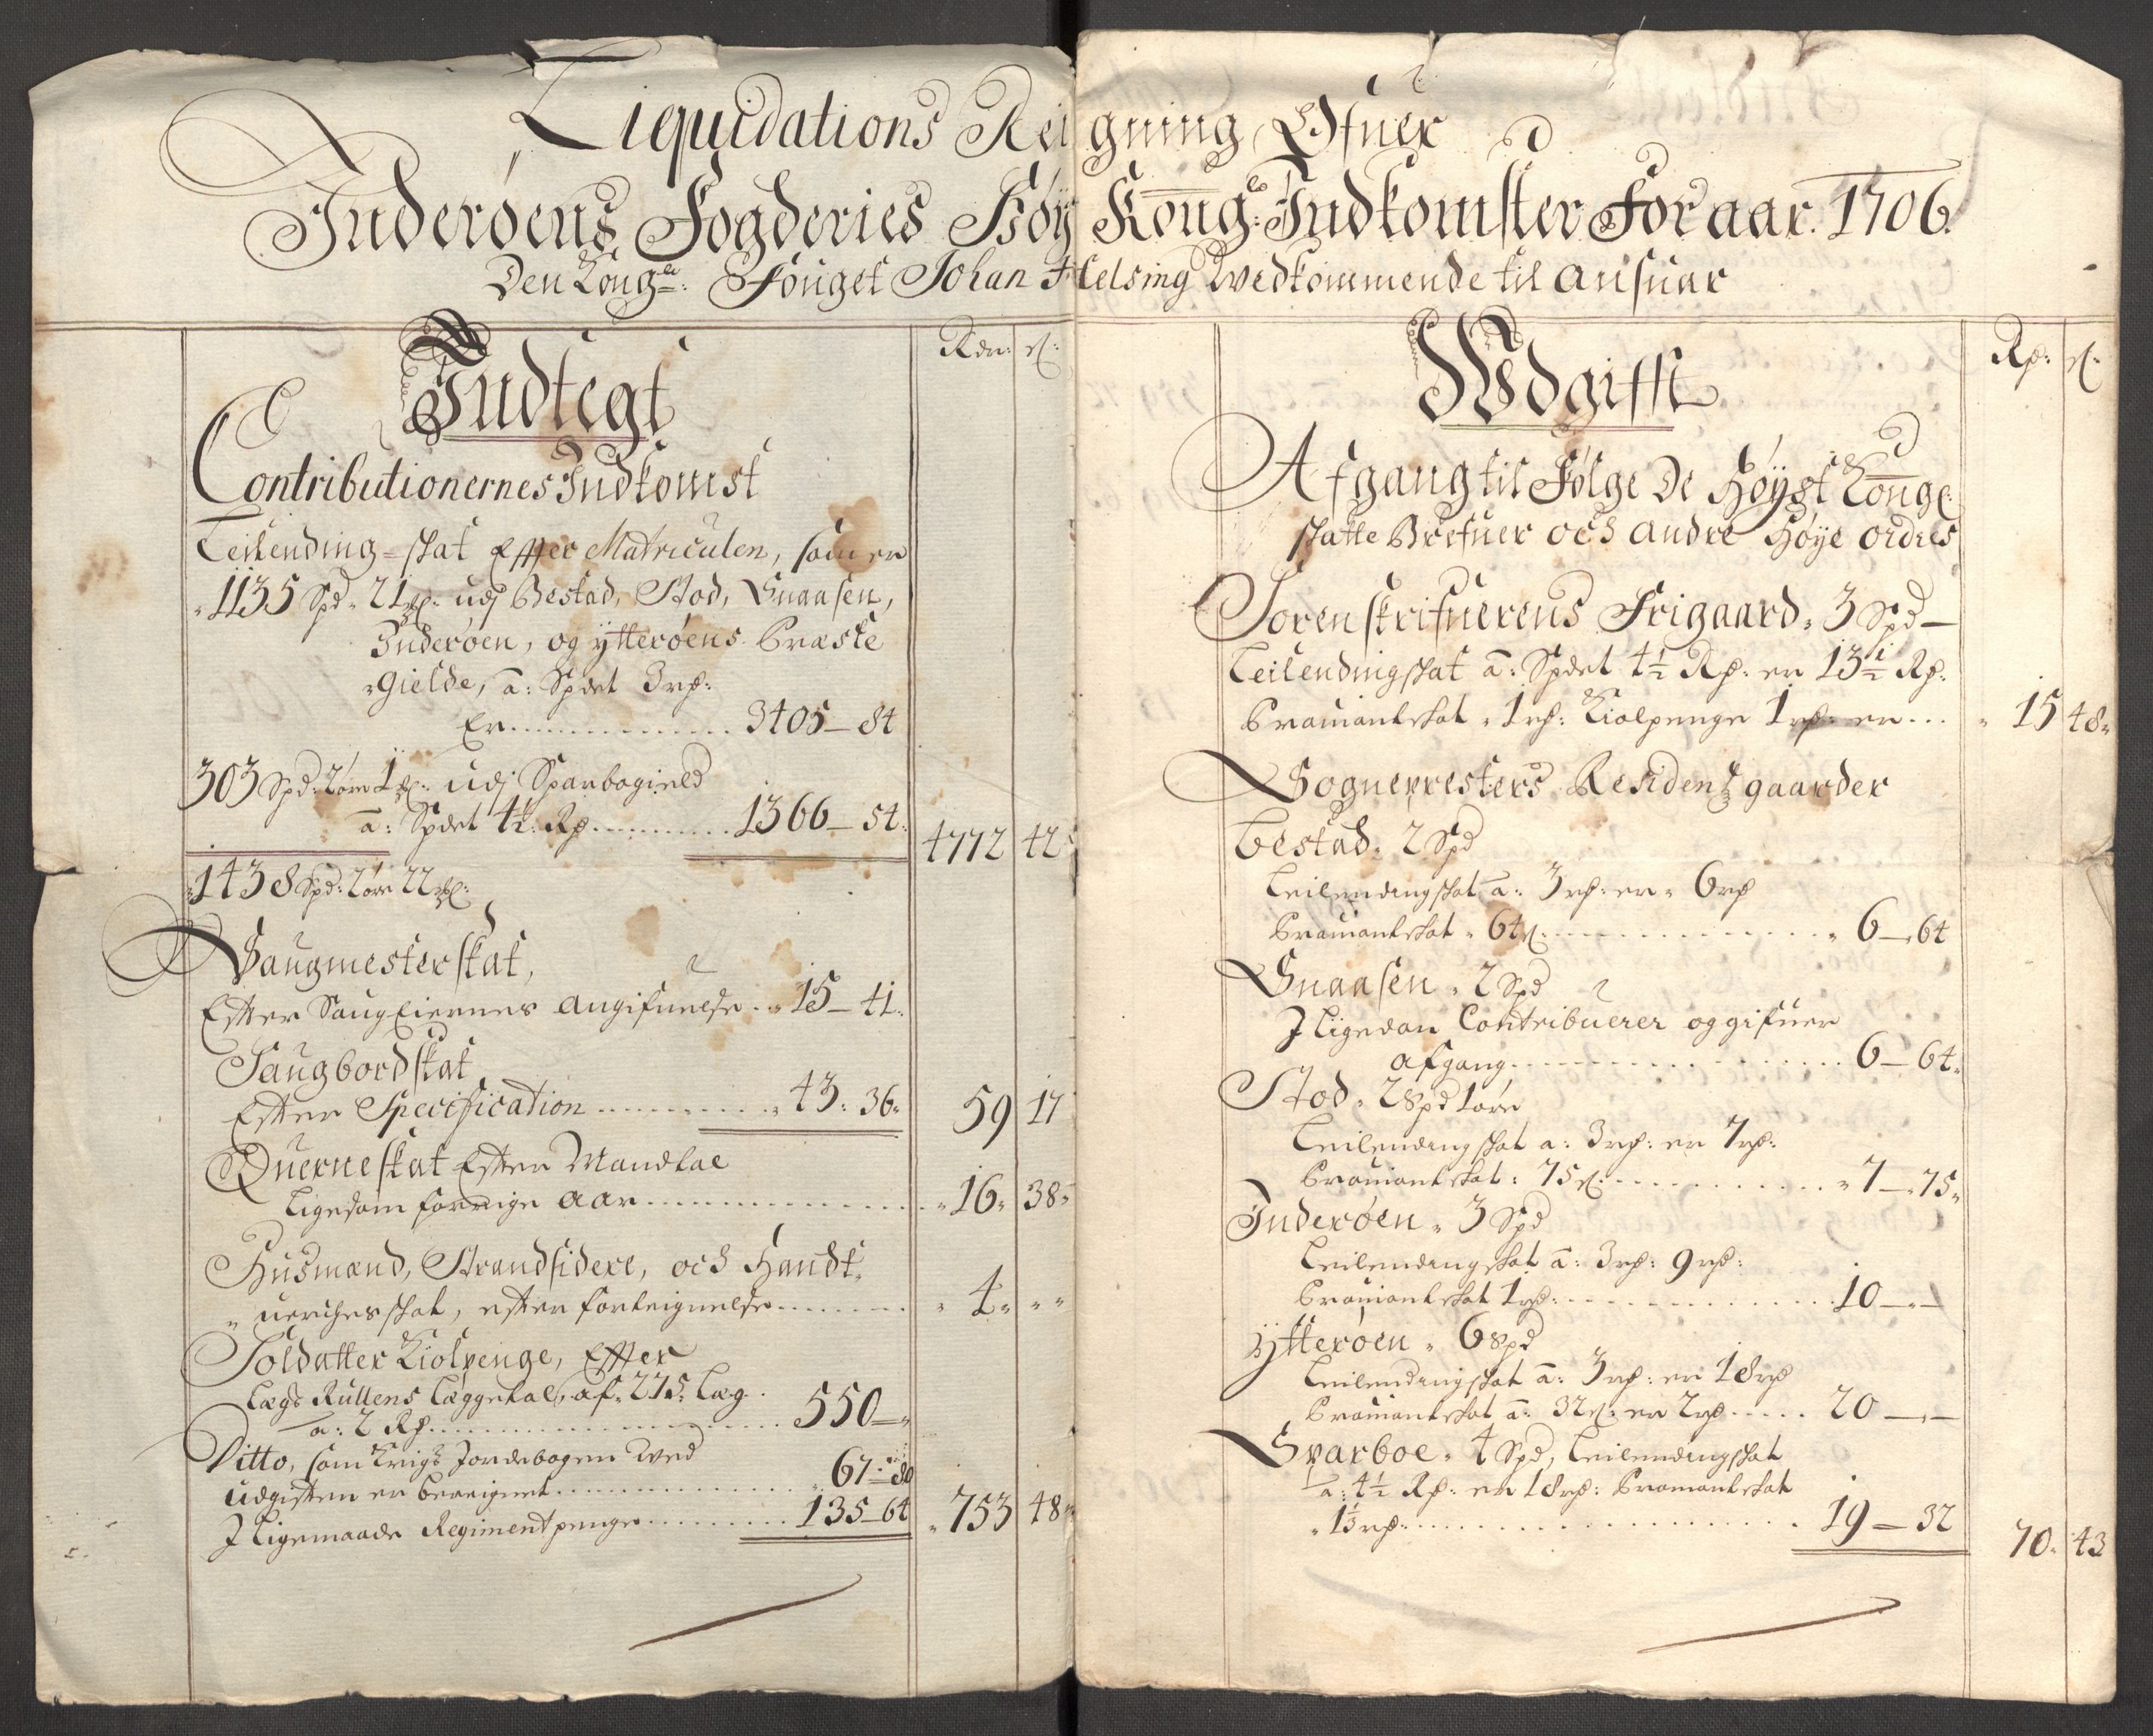 Liquidations Reigning Ofuer
Inderøens Fogderies Høy Kong: Indkomster For aar 1706
Den Kong: Fouget Johan Helsing Wedkommende til ansuar
Rdr: s:
Indtegt
Contributionernes Indkomst
Leilending-skat Effter Matriculen, som er
1135 Spd 21 udj Bestad, Stod, Snaasen,
Inderøen, og ytterøens Præste
gielde, a: Spdet 3 rd:
Er 3405-84
303 Spd: 2 øre 1 udj Sparbogield
a: Spdet 4½ Rd 1366-54
4772 42
1438 Spd: 2 øre 22
Saugmesterskat,
Efter Saug Eiernes angifuelse 15-41
Saugbordskat
Efter Specification 43: 36 59 17
Querneskat Efter Mandtal
ligesom forrige aar 16 38
Husmænd, Strandsidere, och Handt
uerches skat, efter forteignelse 4 " "
Soldatter Kiolpenge, Effter
Lægs Rullens Læggetal, af 275 Læg
a: 2 Rd 550-
Ditto, som Krigs Jordebogen Wed
udgiften er bereignet 67-80
J ligemaade Regimentpenge 135-64 753 48
Rd: s:
Wdgifft
Afgang til Følge De Høyst Kongl:
skatte Brefuer och andre Høye ordres
Sorenskrifuerens Frigaard 3 Spd-
Leilendingskat a: Spdet 4½ Rd: er 13½ Rd:
Prouiantskat 1 rd: Kiolpenge 1 rd er 15 48
Sognepresters Residentz gaarder
Bestad 2 Spd
Leilendingskat a: 3 rd: er 6 rd
Prouiantskat 64 s 6-64
Snaasen 2 Spd
J ligedan Contribuerer og gifuer
afgang 6-64
Stod 2 Spd 1 øre
Leilendingskat a: 3 rd: er 7 rd:
Prouiantskat: 75 s 7-75
Inderøen 3 Spd
Leilendingskat a: 3 rd: 9 rd:
Prouiantskat 1 rd: 10-
Ytterøen 6 Spd
Leilendingskat a: 3 rd: er 18 rd
Prouiantskat a: 32 s: er 2 rd 20-
Sparboe 4 Spd, Leilendingskat
a: 4½ Rd: er 18 rd: Prouiantskat
1⅓ rd: 19-32 70 43